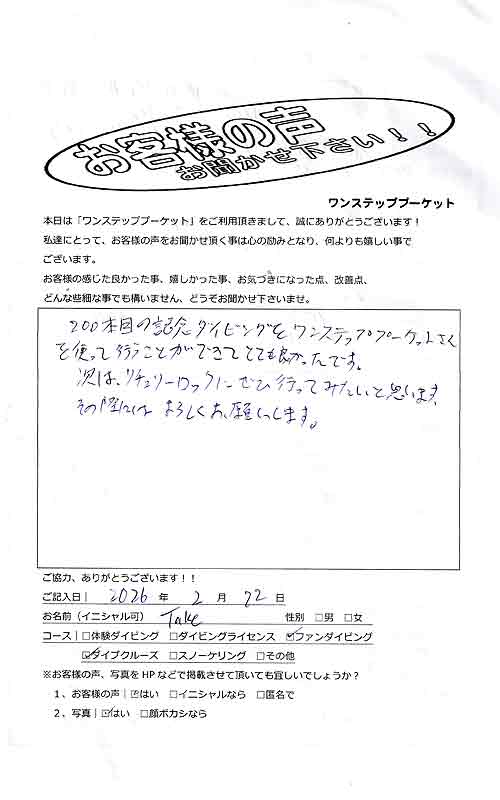 お客様の声
お聞かせ下さい！！
ワンステッププーケット
本日は「ワンステッププーケット」をご利用頂きまして、誠にありがとうございます！
私達にとって、お客様の声をお聞かせ頂く事は心の励みとなり、何よりも嬉しい事で
ございます。
お客様の感じた良かった事、嬉しかった事、お気づきになった点、改善点、
どんな些細な事でも構いません、どうぞお聞かせ下さいませ。
200本目の記念ダイビングをワンステッププーケットさん
を使って行うことができてとても良かったです。
次は、リチェリーロックにぜひ行ってみたいと思います、
その際には よろしくお願いします。
ご協力、ありがとうございます！！
ご記入日| 2026 年 2 月 22 日
お名前（イニシャル可） Take 性別 □男 □女
コース|□体験ダイビング □ダイビングライセンス ☑ファンダイビング
☑ダイブクルーズ □スノーケリング □その他
※お客様の声、写真をHPなどで掲載させて頂いても宜しいでしょうか？
1、お客様の声|☑はい □イニシャルなら □匿名で
2、写真|☑はい □顔ボカシなら